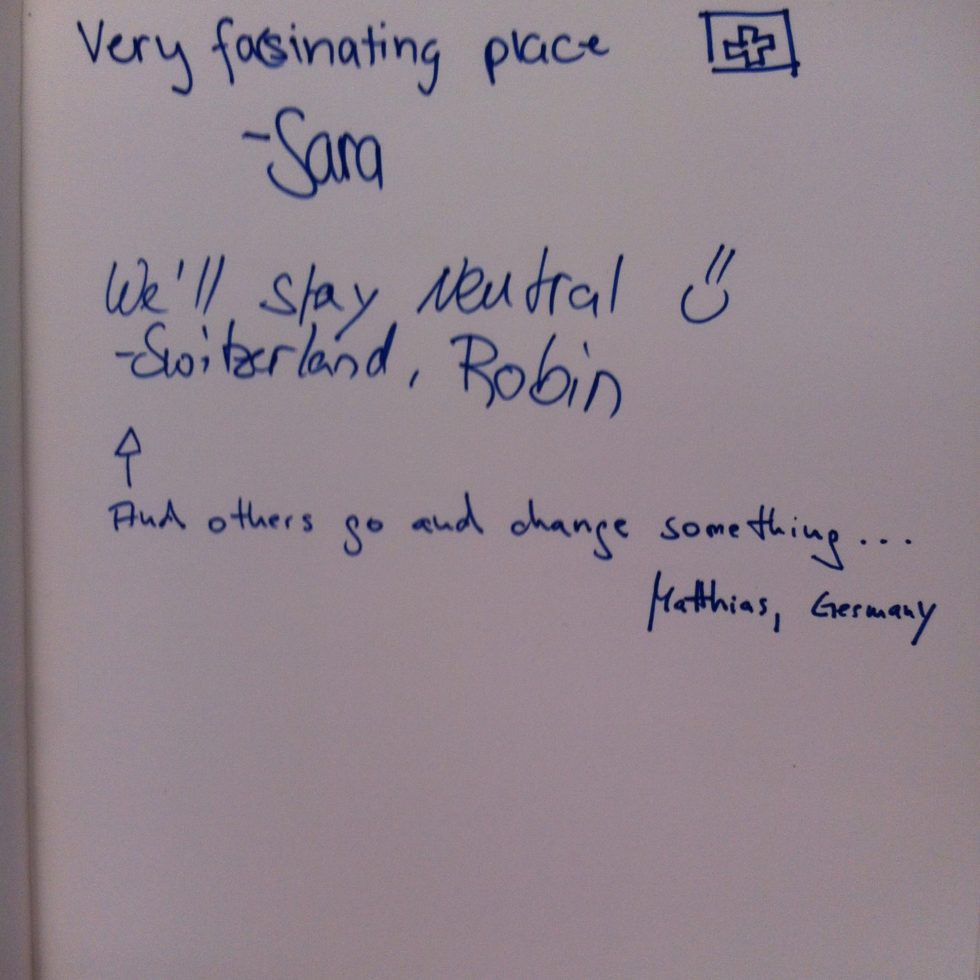 Very facsinating place
-Sara
We'll stay neutral
-Switzerland, Robin
And others go and change something...
Matthias, Germany